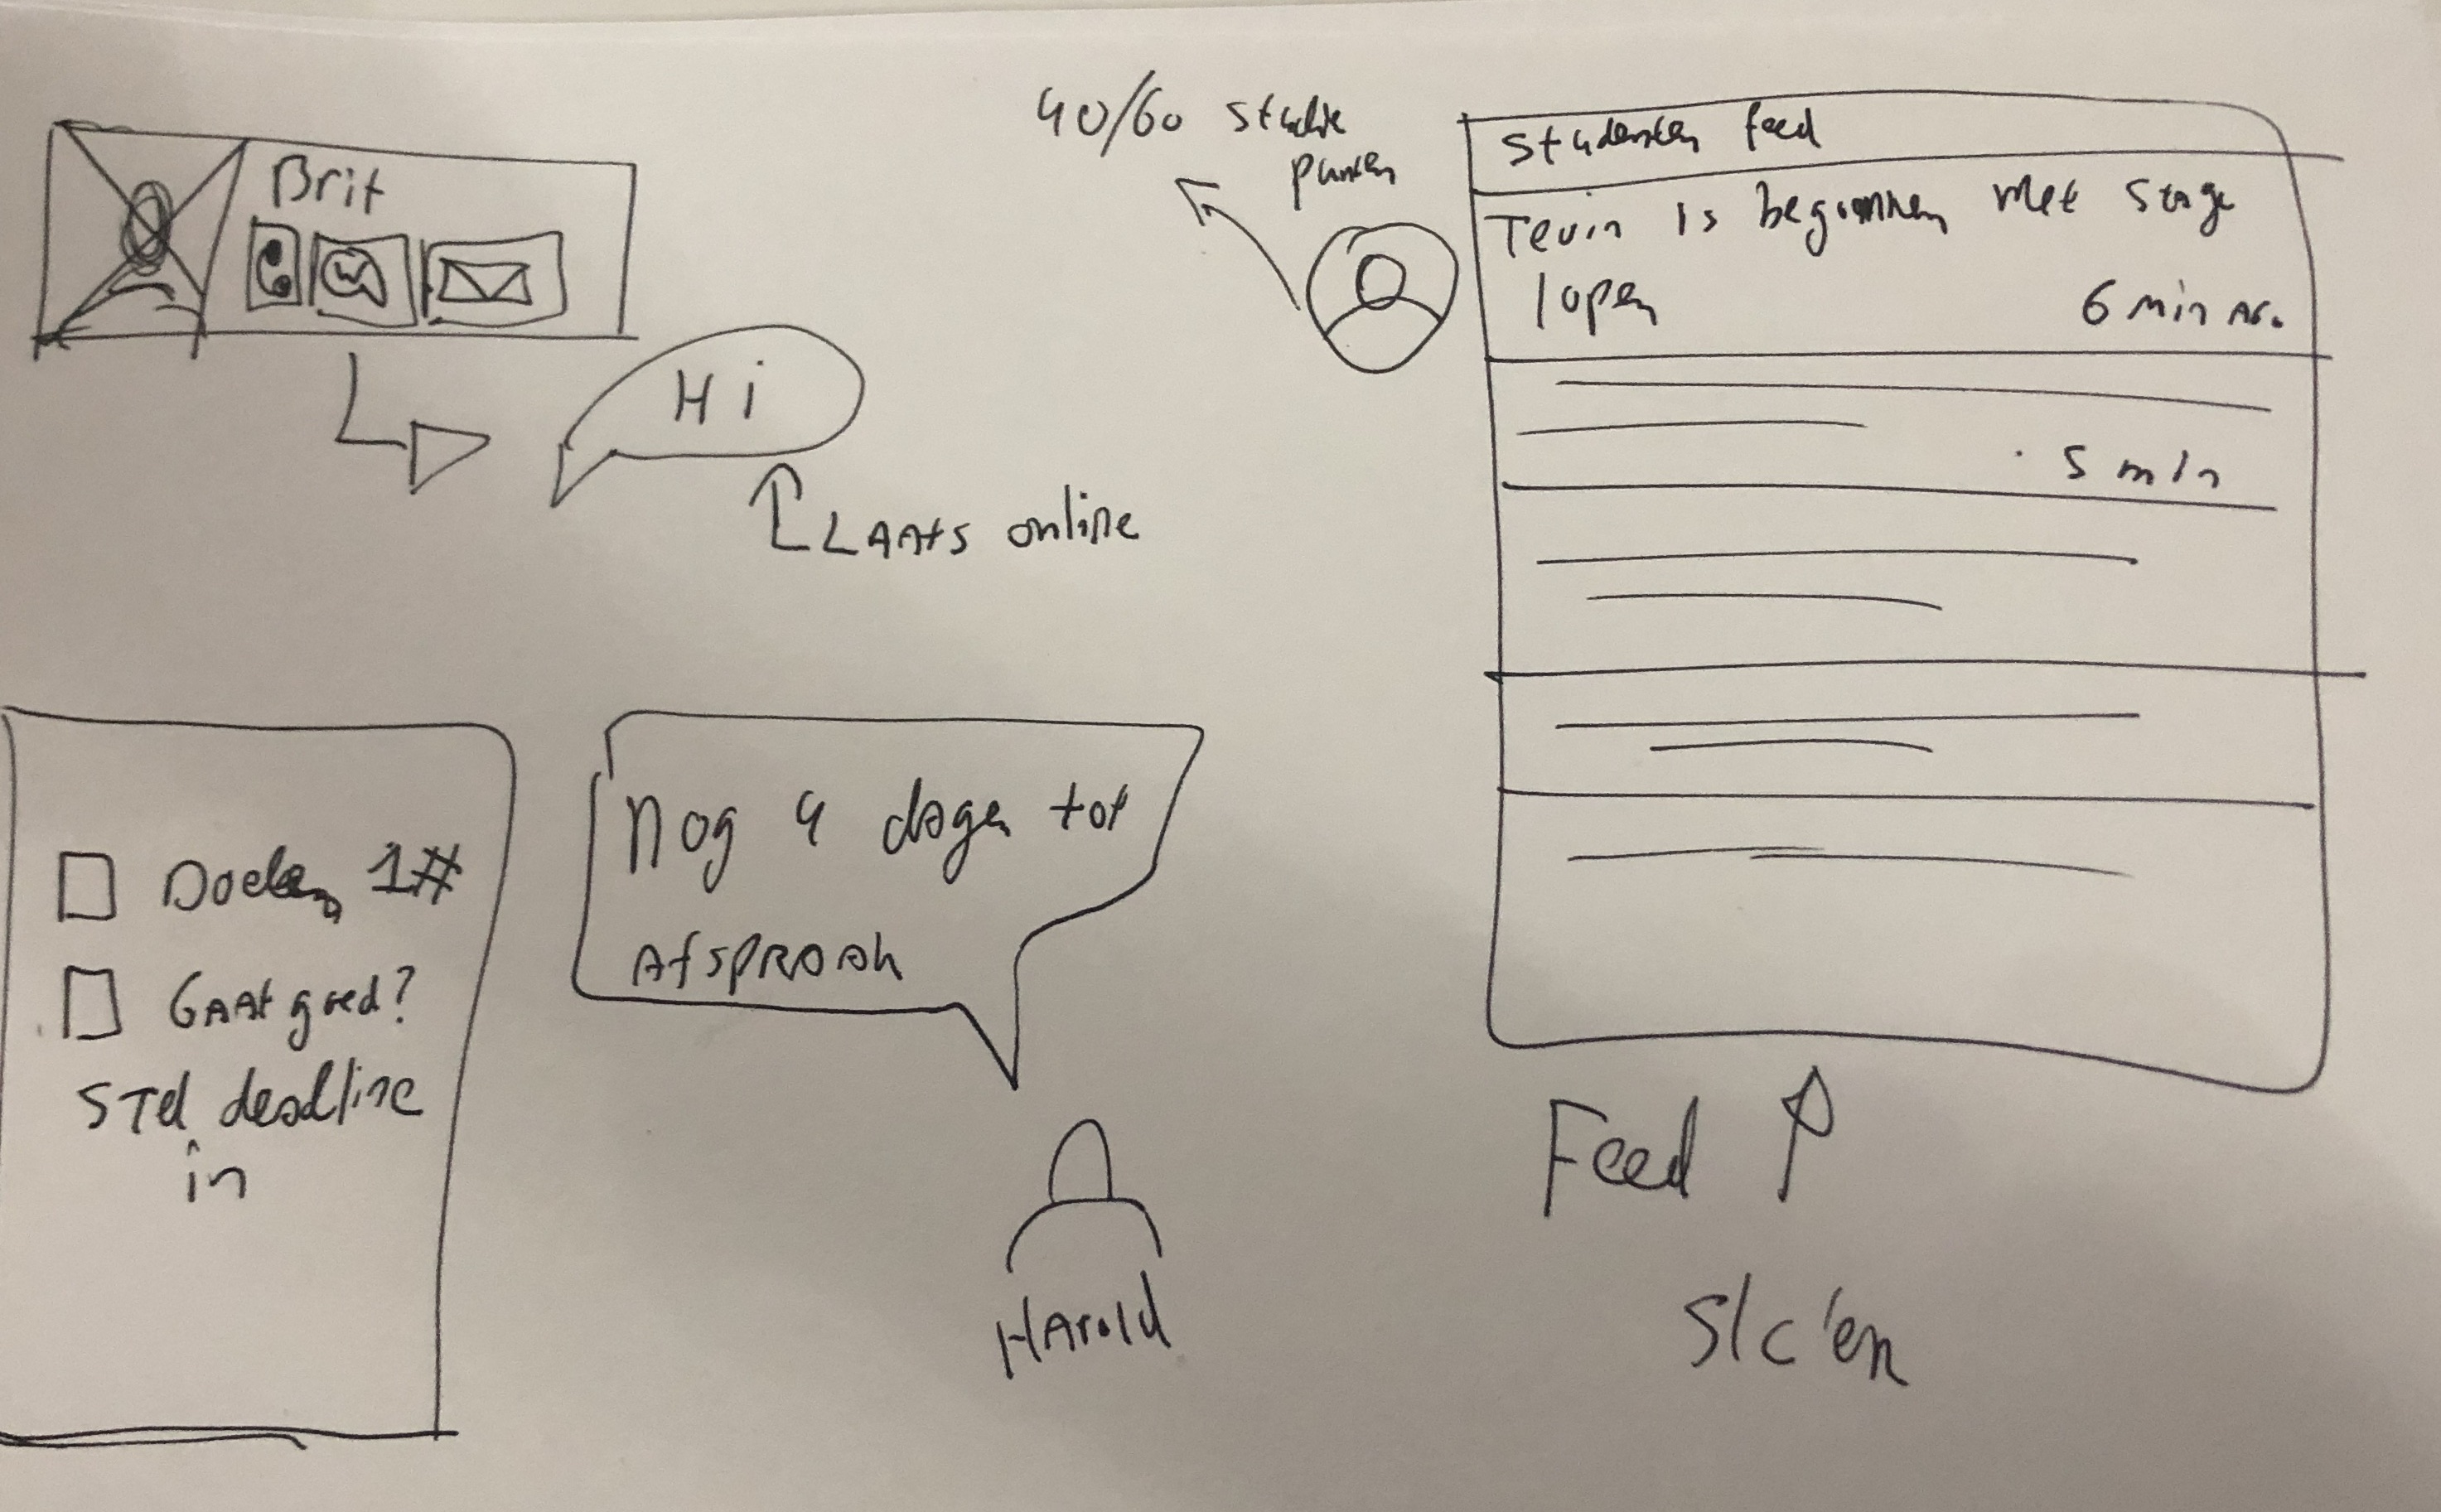 Brit
Hi
LAAtS online
40/60 studie
punten
Studenten feed
Tevin is begonnen met stage
lopen
6 min
5 min
Doelen 1#
GAAt goed?
STel deadline
in
Nog 4 dagen tot
AfSPRAAk
HArold
Feed
Slc'en